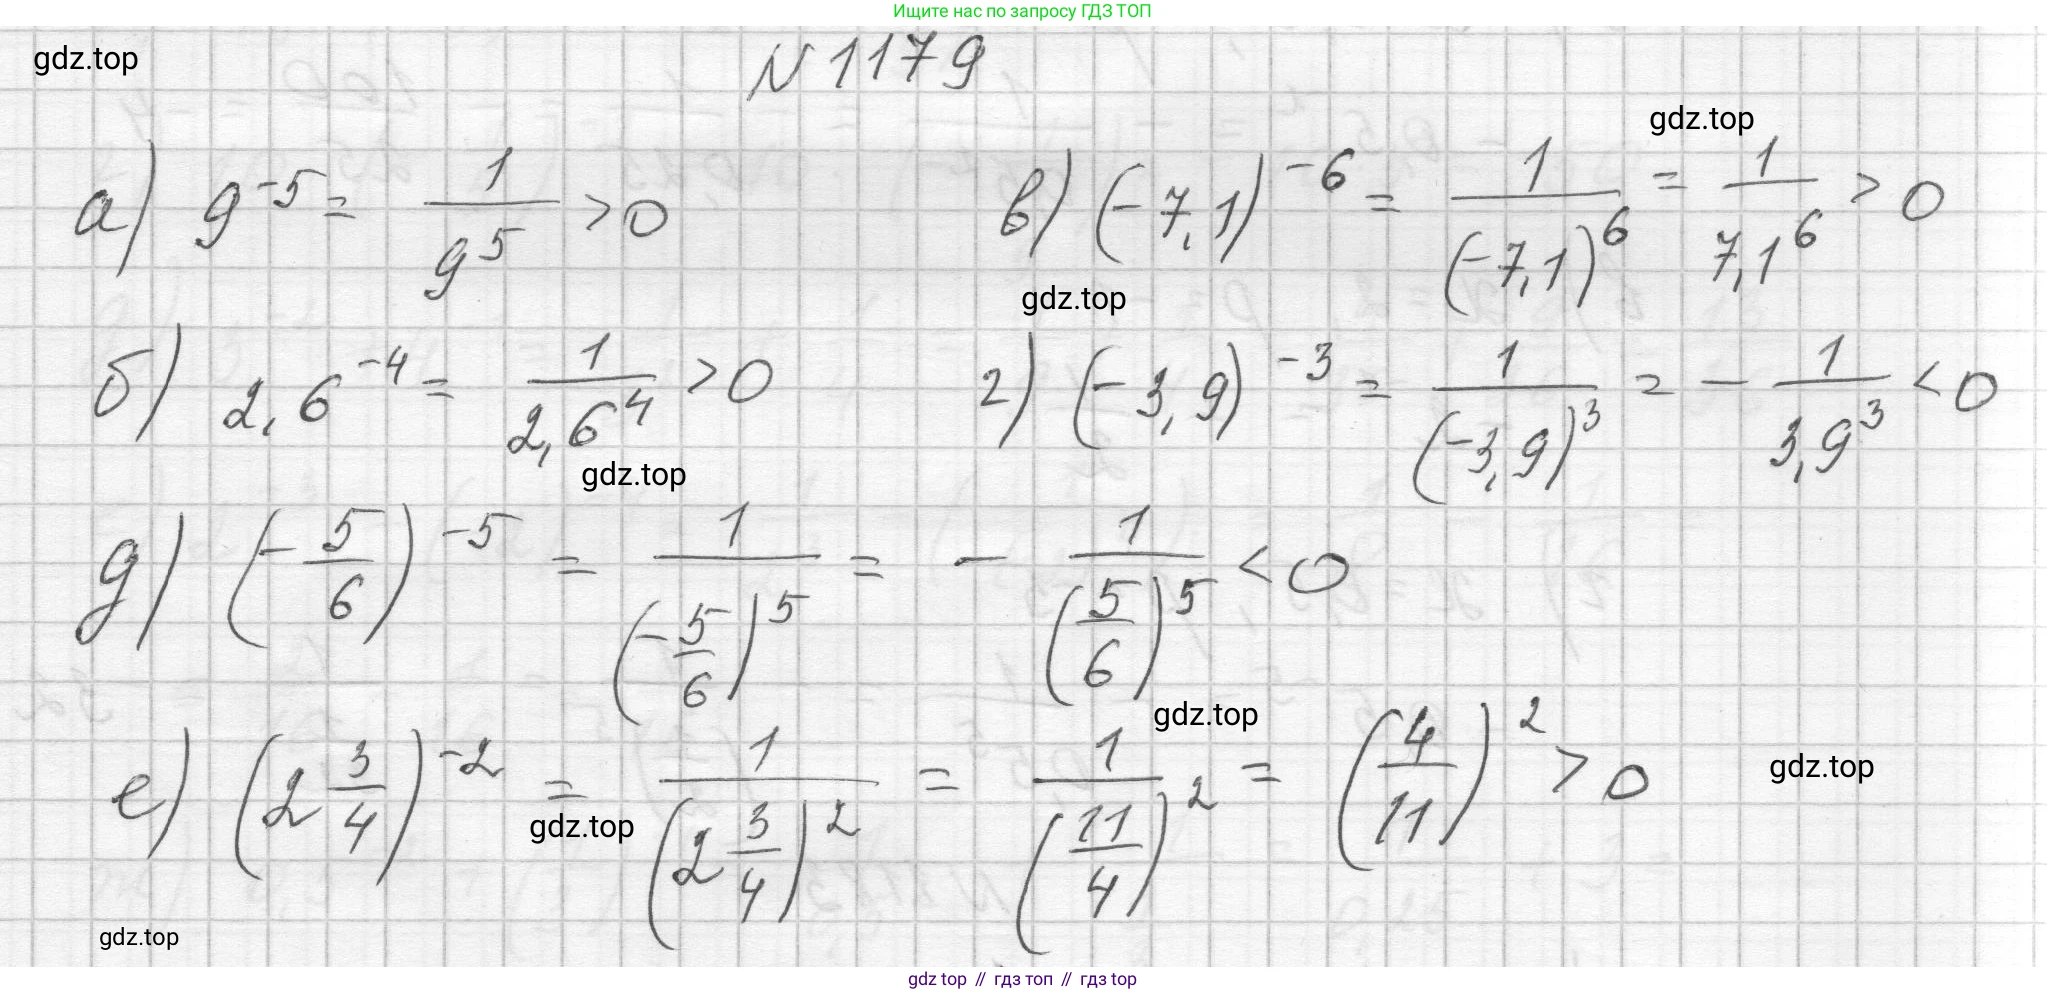 Ищите нас по запросу ГДЗ ТОП
gdz.top
N 1179
gdz.top
а) 9^-5 = 1/9^5 > 0
в) (-7,1)^-6 = 1/(-7,1)^6 = 1/7,1^6 > 0
gdz.top
б) 2,6^-4 = 1/2,6^4 > 0
г) (-3,9)^-3 = 1/(-3,9)^3 = - 1/3,9^3 < 0
gdz.top
д) (-5/6)^-5 = 1/(-5/6)^5 = - 1/(5/6)^5 < 0
gdz.top
е) (2 3/4)^-2 = 1/(2 3/4)^2 = 1/(11/4)^2 = (4/11)^2 > 0
gdz.top
gdz.top
gdz.top
gdz top // гдз топ // гдз top